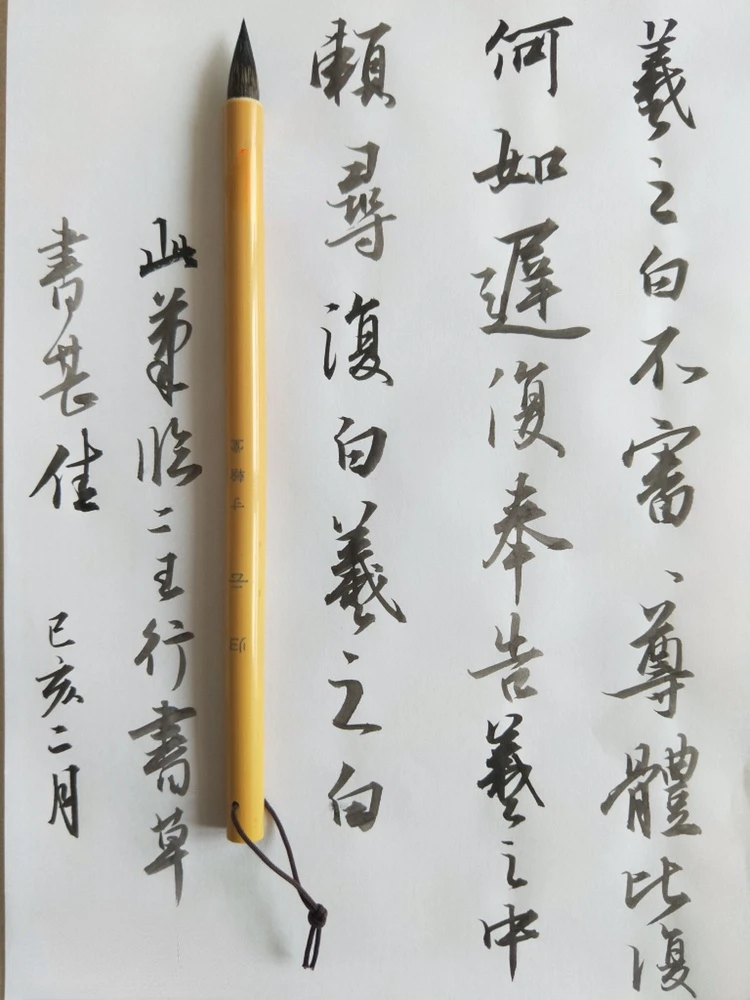 羲之白不審、尊體比復
何如遲復奉告羲之中
頼尋復白羲之白
此筆臨二王行書草
書甚佳 己亥二月